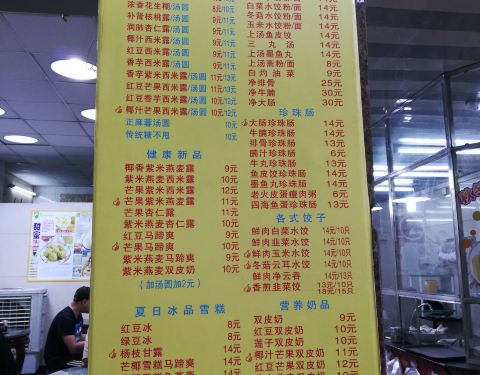 浓香花生糊/汤圆 8元/10元
补肾核桃露/汤圆 9元/11元
润肺杏仁露/汤圆 9元/11元
椰汁西米露/汤圆 9元/11元
红豆西米露/汤圆 9元/11元
香芋西米露/汤圆 9元/11元
香芋紫米西米露/汤圆 11元/13元
红豆芒果西米露/汤圆 11元/13元
红豆香芋西米露/汤圆 10元/12元
椰汁芒果西米露/汤圆 10元/12元
正麻蓉汤圆 10元
传统糖不甩 10元
健康新品
椰香紫米燕麦露 9元
紫米燕麦西米露 10元
芒果紫米西米露 12元
芒果紫米燕麦露 11元
芒果杏仁露 11元
紫米燕麦杏仁露 10元
红豆马蹄爽 9元
芒果马蹄爽 10元
紫米燕麦马蹄爽 9元
紫米燕麦双皮奶 10元
(加汤圆加2元)
夏日冰品雪糕
红豆冰 8元
绿豆冰 8元
杨枝甘露 14元
芒椰雪糕马蹄爽 14元
白菜水饺粉/面 14元
冬菇水饺粉/面 14元
玉米水饺粉/面 14元
上汤鱼皮饺 14元
三丸汤 14元
上汤墨鱼丸 14元
上汤斋粉/面 8元
白灼油菜 9元
净排骨 25元
净牛腩 30元
净大肠 30元
珍珠肠
大肠珍珠肠 14元
牛腩珍珠肠 14元
排骨珍珠肠 13元
腩汁珍珠肠 6元
牛丸珍珠肠 13元
鱼皮饺珍珠肠 14元
墨鱼丸珍珠肠 14元
老火皮蛋瘦肉粥 6元
四海鱼蛋珍珠肠 13元
各式饺子
鲜肉白菜水饺 14元/10只
鲜肉韭菜水饺 14元/10只
鲜肉玉米水饺 14元/10只
冬菇云耳水饺 14元/10只
鲜肉净云吞 14元/13只
香煎韭菜饺 13元/10只
18元/15只
营养奶品
双皮奶 9元
红豆双皮奶 10元
莲子双皮奶 10元
椰汁芒果双皮奶 11元